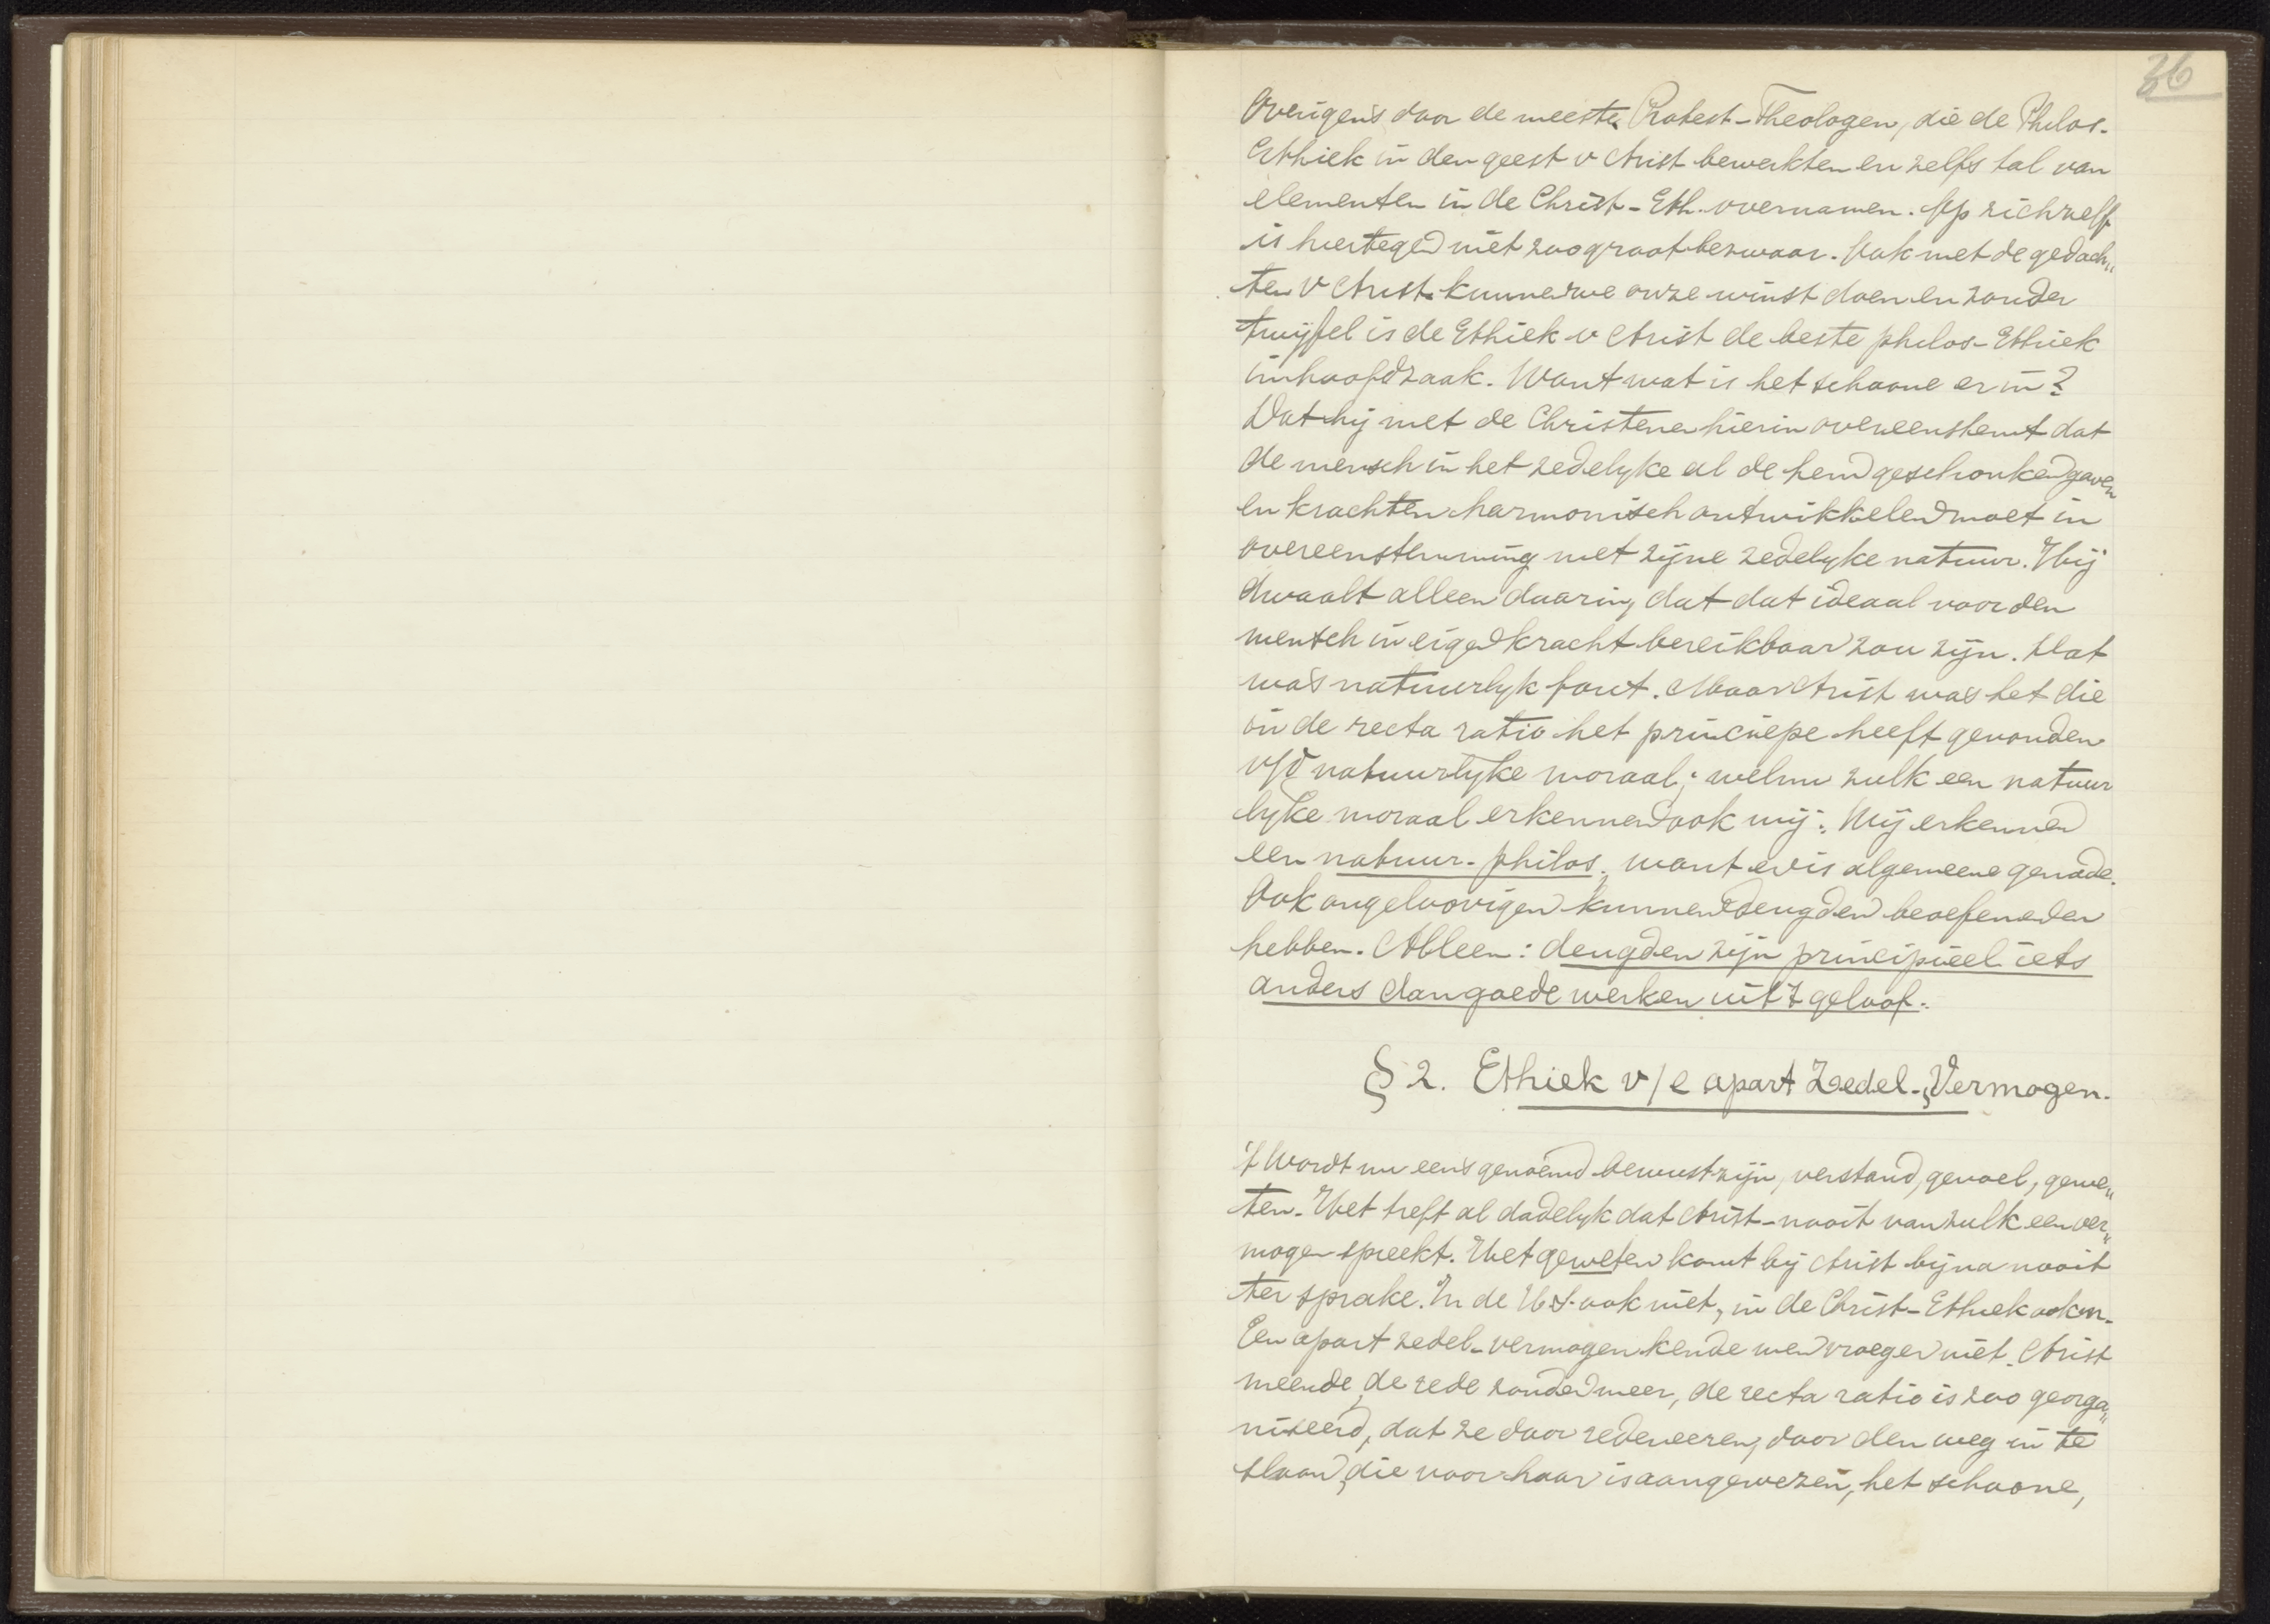 36
Overigens door de meeste Protest-Theologen, die de Philos-
Ethiek in den geest v Arist bewerkten en zelfs tal van
elementen in de Christ-Eth. overnamen. Op zichzelf
is hiertegen niet zoo groot bezwaar. Ook met de gedach„
ten v Arist. kunnen we onze winst doen en zonder
twijfel is de Ethiek v Arist de beste philos-Ethiek
in hoofdzaak. Want wat is het schoone er in?
Dat hij met de Christenen hierin overeenstemt dat
de mensch in het zedelyke al de hem geschonken gaven
en krachten harmonisch ontwikkelen moet in
overeenstemming met zijne zedelyke natuur. Hij
dwaalt alleen daarin, dat dat ideaal voor den
mensch in eigen kracht bereikbaar zou zijn. Dat
was natuurlyk fout. Maar Arist was het die
in de recta ratio het principe heeft gevonden
v/d natuurlyke moraal; welnu zulk een natuur
lyke moraal erkennen ook wij. Wij erkennen
een natuur-philos., want er is algemeene genade.
Ook ongeloovigen kunnen deugden beoefenen en
hebben. Alleen: deugden zijn principieel iets
anders dan goede werken uit 't geloof.
§ 2. Ethiek v/e apart Zedel-Vermogen.
't Wordt nu eens genoemd bewustzijn, verstand, gevoel, gewe„
ten. Het treft al dadelyk dat Arist-nooit van zulk een ver„
mogen spreekt. Het geweten komt bij Arist bijna nooit
ter sprake. In de H.S. ook niet, in de Christ-Ethiek ook n.
Een apart zedel-vermogen kende men vroeger niet. Arist
meende, de rede zonder meer, de recta ratio is zoo georga„
niseerd, dat ze door redeneeren, door den weg in te
slaan, die voor haar is aangewezen, het schoone,